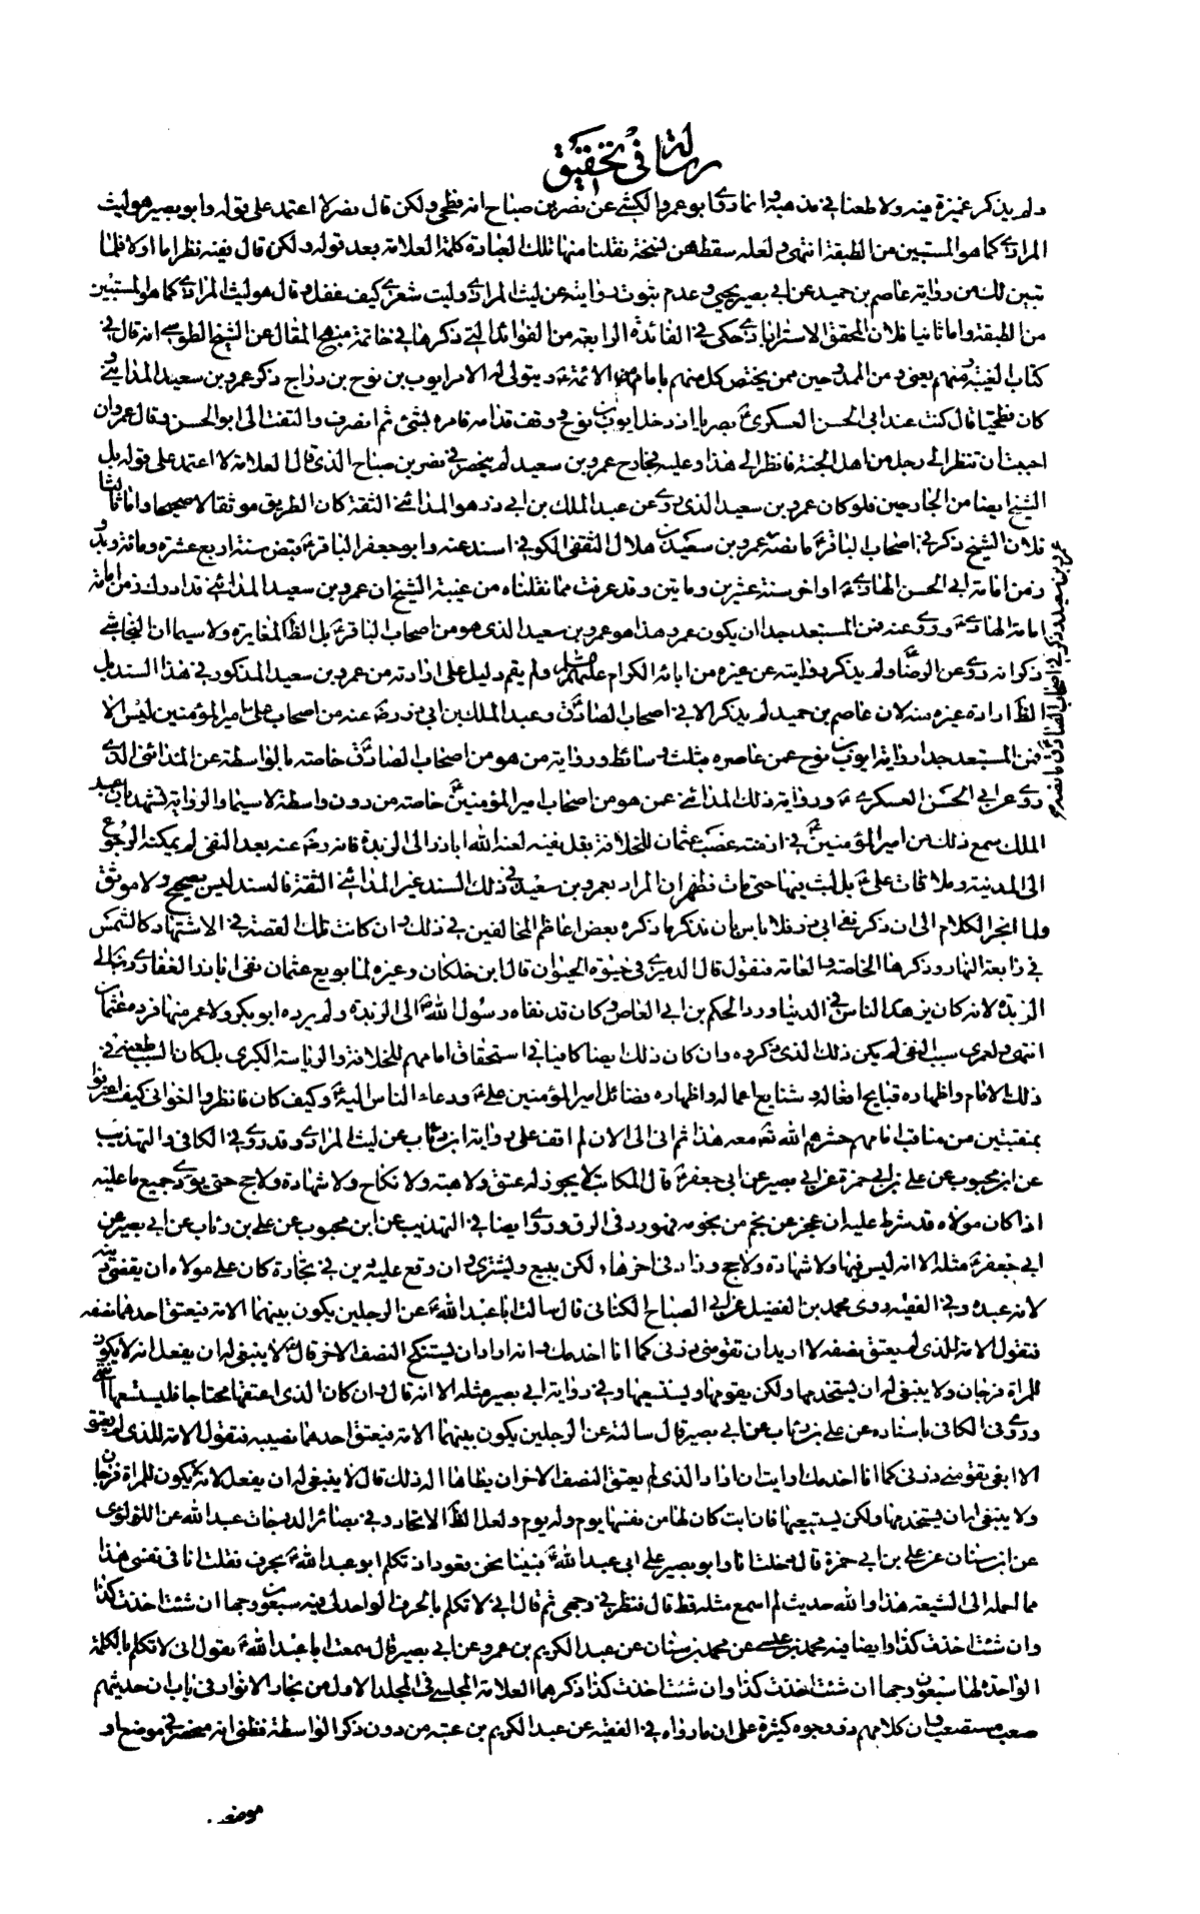 رسالة في تحقيق
ولم يذكر غيره فيه ولا طعنا في مذهبه وانما روى ابو عمرو الكشي عن نصر بن صباح انه فطحي ولكن قال نصر لا اعتمد على قوله وابو بصير هو ليث
المرادي كما هو المستبين من الطبقة انتهى ولعله سقط من نسخة نقلنا منها تلك العبارة كلمة العلامة بعد قوله ولكن قال وفيه نظر اما اولا فلما
تبين لك من رواية عاصم بن حميد عن ابي بصير يحيى وعدم ثبوت روايته عن ليث المرادي وليت شعري كيف غفل وقال هو ليث المرادي كما هو المستبين
من الطبقة واما ثانيا فلان المحقق الاسترابادي حكى في الفائدة الرابعة من الفوائد التي ذكرها في خاتمة منهج المقال عن الشيخ الطوسي انه قال في
كتاب الغيبة ومنهم يعني ومن الممدوحين ممن يختص كل منهم بامام من الائمة ع ويتولى له الامر ايوب بن نوح بن دراج ذكر عمرو بن سعيد المدائني و
كان فطحيا قال كنت عند ابي الحسن العسكري ع بصريا اذ دخل ايوب بن نوح ووقف قدامه فامره بشئ ثم انصرف والتفت الى ابو الحسن وقال عمرو ان
احببت ان تنظر الى رجل من اهل الجنة فانظر الى هذا وعليه فجارح عمرو بن سعيد لم ينحصر في نصر بن صباح الذي قال العلامة لا اعتمد على قوله بل
الشيخ ايضا من الجارحين فلو كان عمرو بن سعيد الذي روى عن عبد الملك بن ابي ذر هو المدائني الثقة كان الطريق موثقا لا صحيحا واما ثالثا
فلان الشيخ ذكر في اصحاب الباقر ع ما نصه عمرو بن سعيد بن هلال الثقفي الكوفي اسند عنه وابو جعفر الباقر ع قبض سنة اربع عشرة ومائة وبدو
زمن امامة ابي الحسن الهادي ع اواخر سنة عشرين ومايتين وقد عرفت مما نقلناه من غيبة الشيخ ان عمرو بن سعيد المدائني قد ادرك زمن امامة
امامة الهادي ع وروى عنه فمن المستبعد جدا ان يكون عمرو هذا هو عمرو بن سعيد الذي هو من اصحاب الباقر ع بل الظ المغايرة ولا سيما ان النجاشي
ذكر انه روى عن الرضا ع ولم يذكر روايته عن غيره من ابائه الكرام عليهم السلم ولم يقم دليل على ارادته من عمرو بن سعيد المذكور في هذا السند بل
الظ ارادة غيره منه لان عاصم بن حميد لم يذكر الا في اصحاب الصادق ع وعبد الملك بن ابي ذر رضه عنه من اصحاب على امير المؤمنين ليس الا
فمن المستبعد جدا رواية ايوب بن نوح عمن عاصره بثلث وسائط ورواية من هو من اصحاب الصادق ع خاصته بالواسطة عن المدائني الذي
روى عن ابي الحسن العسكري ع ورواية ذلك المدائني عمن هو من اصحاب امير المؤمنين ع خاصته من دون واسطة لا سيما والرواية تشهد بان عبد
الملك سمع ذلك من امير المؤمنين ع في ازمنة غصب عثمان للخلافة بقبل نفيه لعنه الله اباذر الى الربذة فانه رضه عنه بعد النفي لم يمكنه الرجوع
الى المدينة وملاقات على ع بل لبث فيها حتى مات فظهر ان المراد بعمرو بن سعيد في ذلك السند غير المدائني الثقة فالسند ليس بصحيح ولا موثق
ولما انجر الكلام الى ان ذكر نفي ابي ذر فلا باس بان نذكر ما ذكره بعض اعاظم المخالفين في ذلك وان كانت تلك القصة في الاشتهار كالشمس
في رابعة النهار وذكرها الخاصة والعامة فنقول قال الدميري في حيوة الحيوان قال ابن خلكان وغيره لما بويع عثمان نفى اباذر الغفاري رض الى
الربذة لانه كان يزهد الناس في الدنيا ورد الحكم بن ابي العاص وكان قد نفاه رسول الله ص الى الربذة ولم يرده ابو بكر ولا عمر منها فرده عثمان
انتهى ولعمري سبب النفي لم يكن ذلك الذي ذكره وان كان ذلك ايضا كافيا في استحقاق امامهم للخلافة والرياسة الكبرى بل كان السبب طعنه في
ذلك الامام واظهاره قبايح افعاله وشنايع اعماله واظهاره فضائل امير المؤمنين على ع ودعاء الناس اليه ع وكيف كان فانظروا اخواني كيف اعترفوا
بمنقبتين من مناقب امامهم حشرهم الله تع معه هذا ثم اني الى الان لم اقف على رواية ابن رئاب عن ليث المرادي وقد روى في الكافي والتهذيب
عن ابن محبوب عن على بن ابي حمزة عن ابي بصير عن ابي جعفر ع قال المكاتب لا يجوز له عتق ولا هبة ولا نكاح ولا شهادة ولا حج حتى يؤدي جميع ما عليه
اذا كان مولاه قد شرط عليه ان عجز عن نجم من نجومه فهو رد في الرق وروى ايضا في التهذيب عن ابن محبوب عن على بن رئاب عن ابي بصير عن
ابي جعفر ع مثله الا انه ليس فيها ولا شهادة ولا حج وزاد في اخرها ولكن يبيع ويشتري وان وقع عليه دين في تجارة كان على مولاه ان يقضي دينه
لانه عبده وفي الفقيه روى محمد بن الفضيل عن ابي الصباح الكناني قال سالت ابا عبد الله ع عن الرجلين يكون بينهما الامة فيعتق احدهما نصفه
فتقول الامة للذي لم يعتق نصفه لا اريد ان تقومني ذرني كما انا اخدمك وانه اراد ان يستنكح النصف الاخر قال ع لا ينبغي له ان يفعل انه لا يكون
للمراة فرجان ولا ينبغي له ان يستخدمها ولكن يقومها ويستسعيها وفي رواية ابي بصير مثله الا انه قال وان كان الذي اعتقها محتاجا فليستسعها
وروى في الكافي باسناده عن على بن رئاب عن ابي بصير قال سالته عن الرجلين يكون بينهما الامة فيعتق احدهما نصيبه فتقول الامة للذي لم يعتق
لا ابغي تقومني ذرني كما انا اخدمك ارايت ان اراد الذي لم يعتق النصف الاخر ان يطأها اله ذلك قال لا ينبغي له ان يفعل لانه لا يكون للمراة فرجان
ولا ينبغي له ان يستخدمها ولكن يستسعيها فان ابت كان لها من نفسها يوم وله يوم ولعل الظ الاتحاد وفي بصائر الدرجات عبد الله عن اللؤلؤي
عن ابن سنان عن على بن ابي حمزة قال دخلت انا وابو بصير على ابي عبد الله ع فبينا نحن قعود اذ تكلم ابو عبد الله ع بحرف فقلت انا في نفسي هذا
مما احمله الى الشيعة هذا والله حديث لم اسمع مثله قط قال فنظر في وجهي ثم قال اني لا تكلم بالحرف الواحد لي فيه سبعون وجها ان شئت اخذت كذا
وان شئت اخذت كذا وايضا فيه محمد بن عيسى عن محمد بن سنان عن عبد الكريم بن عمرو عن ابي بصير قال سمعت ابا عبد الله ع يقول اني لا تكلم بالكلمة
الواحدة لها سبعون وجها ان شئت اخذت كذا وان شئت اخذت كذا ذكرهما العلامة المجلسي في المجلد الاول من بحار الانوار في باب ان حديثهم
صعب مستصعب وان كلامهم ذو وجوه كثيرة على ان ما رواه في الفقيه عن عبد الكريم بن عتبه من دون ذكر الواسطة فظني انه منحصر في موضع او
عمرو بن سعيد ذكر في اصحاب الصادق ع ما نصه
موضعين